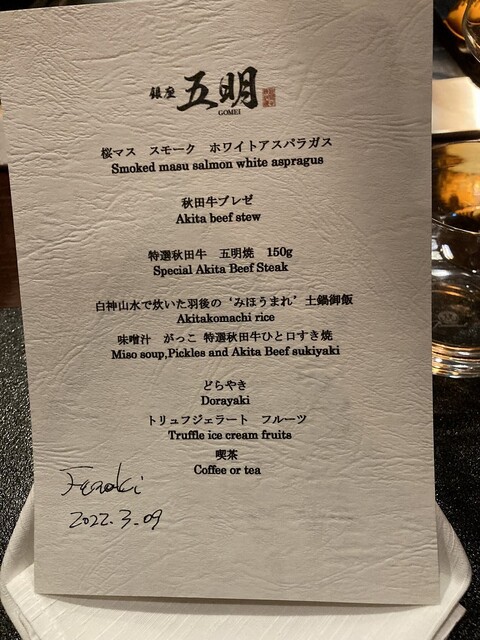 銀座 五明
GOMEI
桜マス　スモーク　ホワイトアスパラガス
Smoked masu salmon white aspragus
秋田牛ブレゼ
Akita beef stew
特選秋田牛　五明焼　150g
Special Akita Beef Steak
白神山水で炊いた羽後の‘みほうまれ’土鍋御飯
Akitakomachi rice
味噌汁　がっこ 特選秋田牛ひと口すき焼
Miso soup,Pickles and Akita Beef sukiyaki
どらやき
Dorayaki
トリュフジェラート　フルーツ
Truffle ice cream fruits
喫茶
Coffee or tea
2022.3.09